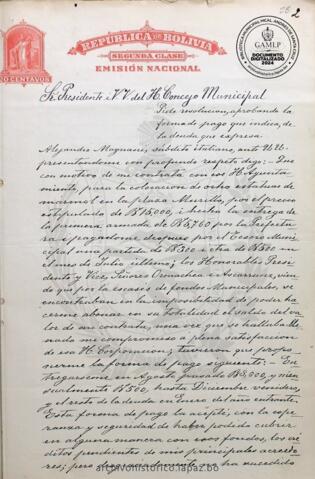 2
REPÚBLICA DE BOLIVIA
SEGUNDA CLASE
EMISIÓN NACIONAL
CENTAVOS
BIBLIOTECA MUNICIPAL MCAL. ANDRÉS DE SANTA CRUZ
GAMLP
DOCUMENTO
DIGITALIZADO
2024
Sr. Presidente i V V del H. Concejo Municipal
Pide resolucion, aprobando la
forma de pago que indica, de
la deuda que expresa.
Alejandro Magnani, súbdito italiano, ante U.U.
presentandome con profundo respeto digo: Que
con motivo de mi contrato con ese H. Ayunta
miento, para la colocacion de ocho estatuas de
marmol en la plaza Murillo, por el precio
estipulado de B 15,000, i hecha la entrega de
la primera armada de B 3,760 por la Prefectu
ra i pagandome despues por el Tesoro Muni
cipal una partida de B 500 i otra de B 500 en
el mes de Julio ultimo; los Honorables Presi
dente y Vice, Señores Ormachea i Ascarrunz, vien
do que por la escasés de fondos Municipales, se
encontraban en la imposibilidad de poder ha
cerme abonar en su totalidad el saldo del va
lor de mi contrato, una vez que se hallaba lle
nado mi compromiso a plena satisfaccion
de esa H. Corporacion; tuvieron que propo
nerme la forma de pago siguiente: En
tregaseme en Agosto pasado B 3,000, y men
sualmente B 500, hasta Diciembre venidero,
y el resto de la deuda en Enero del año entrante.
Esta forma de pago la acepté, con la espe
ranza y seguridad de haber podido cubrir
en alguna manera con esos fondos, los cré
ditos pendientes de mis principales acreedo
res; pero desgraciadamente no ha sucedido
archivohistorico.lapaz.bo